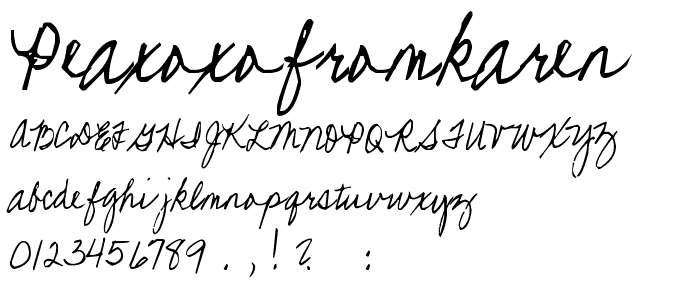 Peaxoxofromkaren
ABCDEFGHIJKLMNOPQRSTUVWXYZ
abcdefghijklmnopqrstuvwxyz
0123456789 . , ! ? :